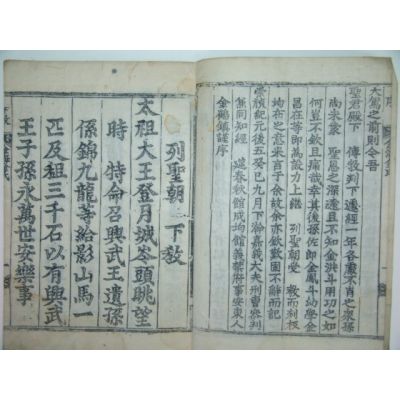 大駕之前則今吾
聖君殿下 傳教判下遞經一年各慮不肖之衆孫
尚未蒙 聖恩之深遠且不知金洪斗用功之如
何豈不欽且痛哉幸其後孫佐郎金鳳斗幼學金
昌在等即萬收力上繼 列聖朝受 教而刻板
均布之意來言于余故余亦欽歎固不辭而記
崇禎紀元後癸巳九月下澣嘉義大夫刑曹參判
兼同知經 筵春秋館成均館義禁府事安東人
金鶴鎮謹序
列聖朝 下教
太祖大王登月城岑頭眺望
時 特命召興武王遺孫
係錦九龍等給影山馬一
匹及租三千石以有興武
王子孫永萬世安樂事